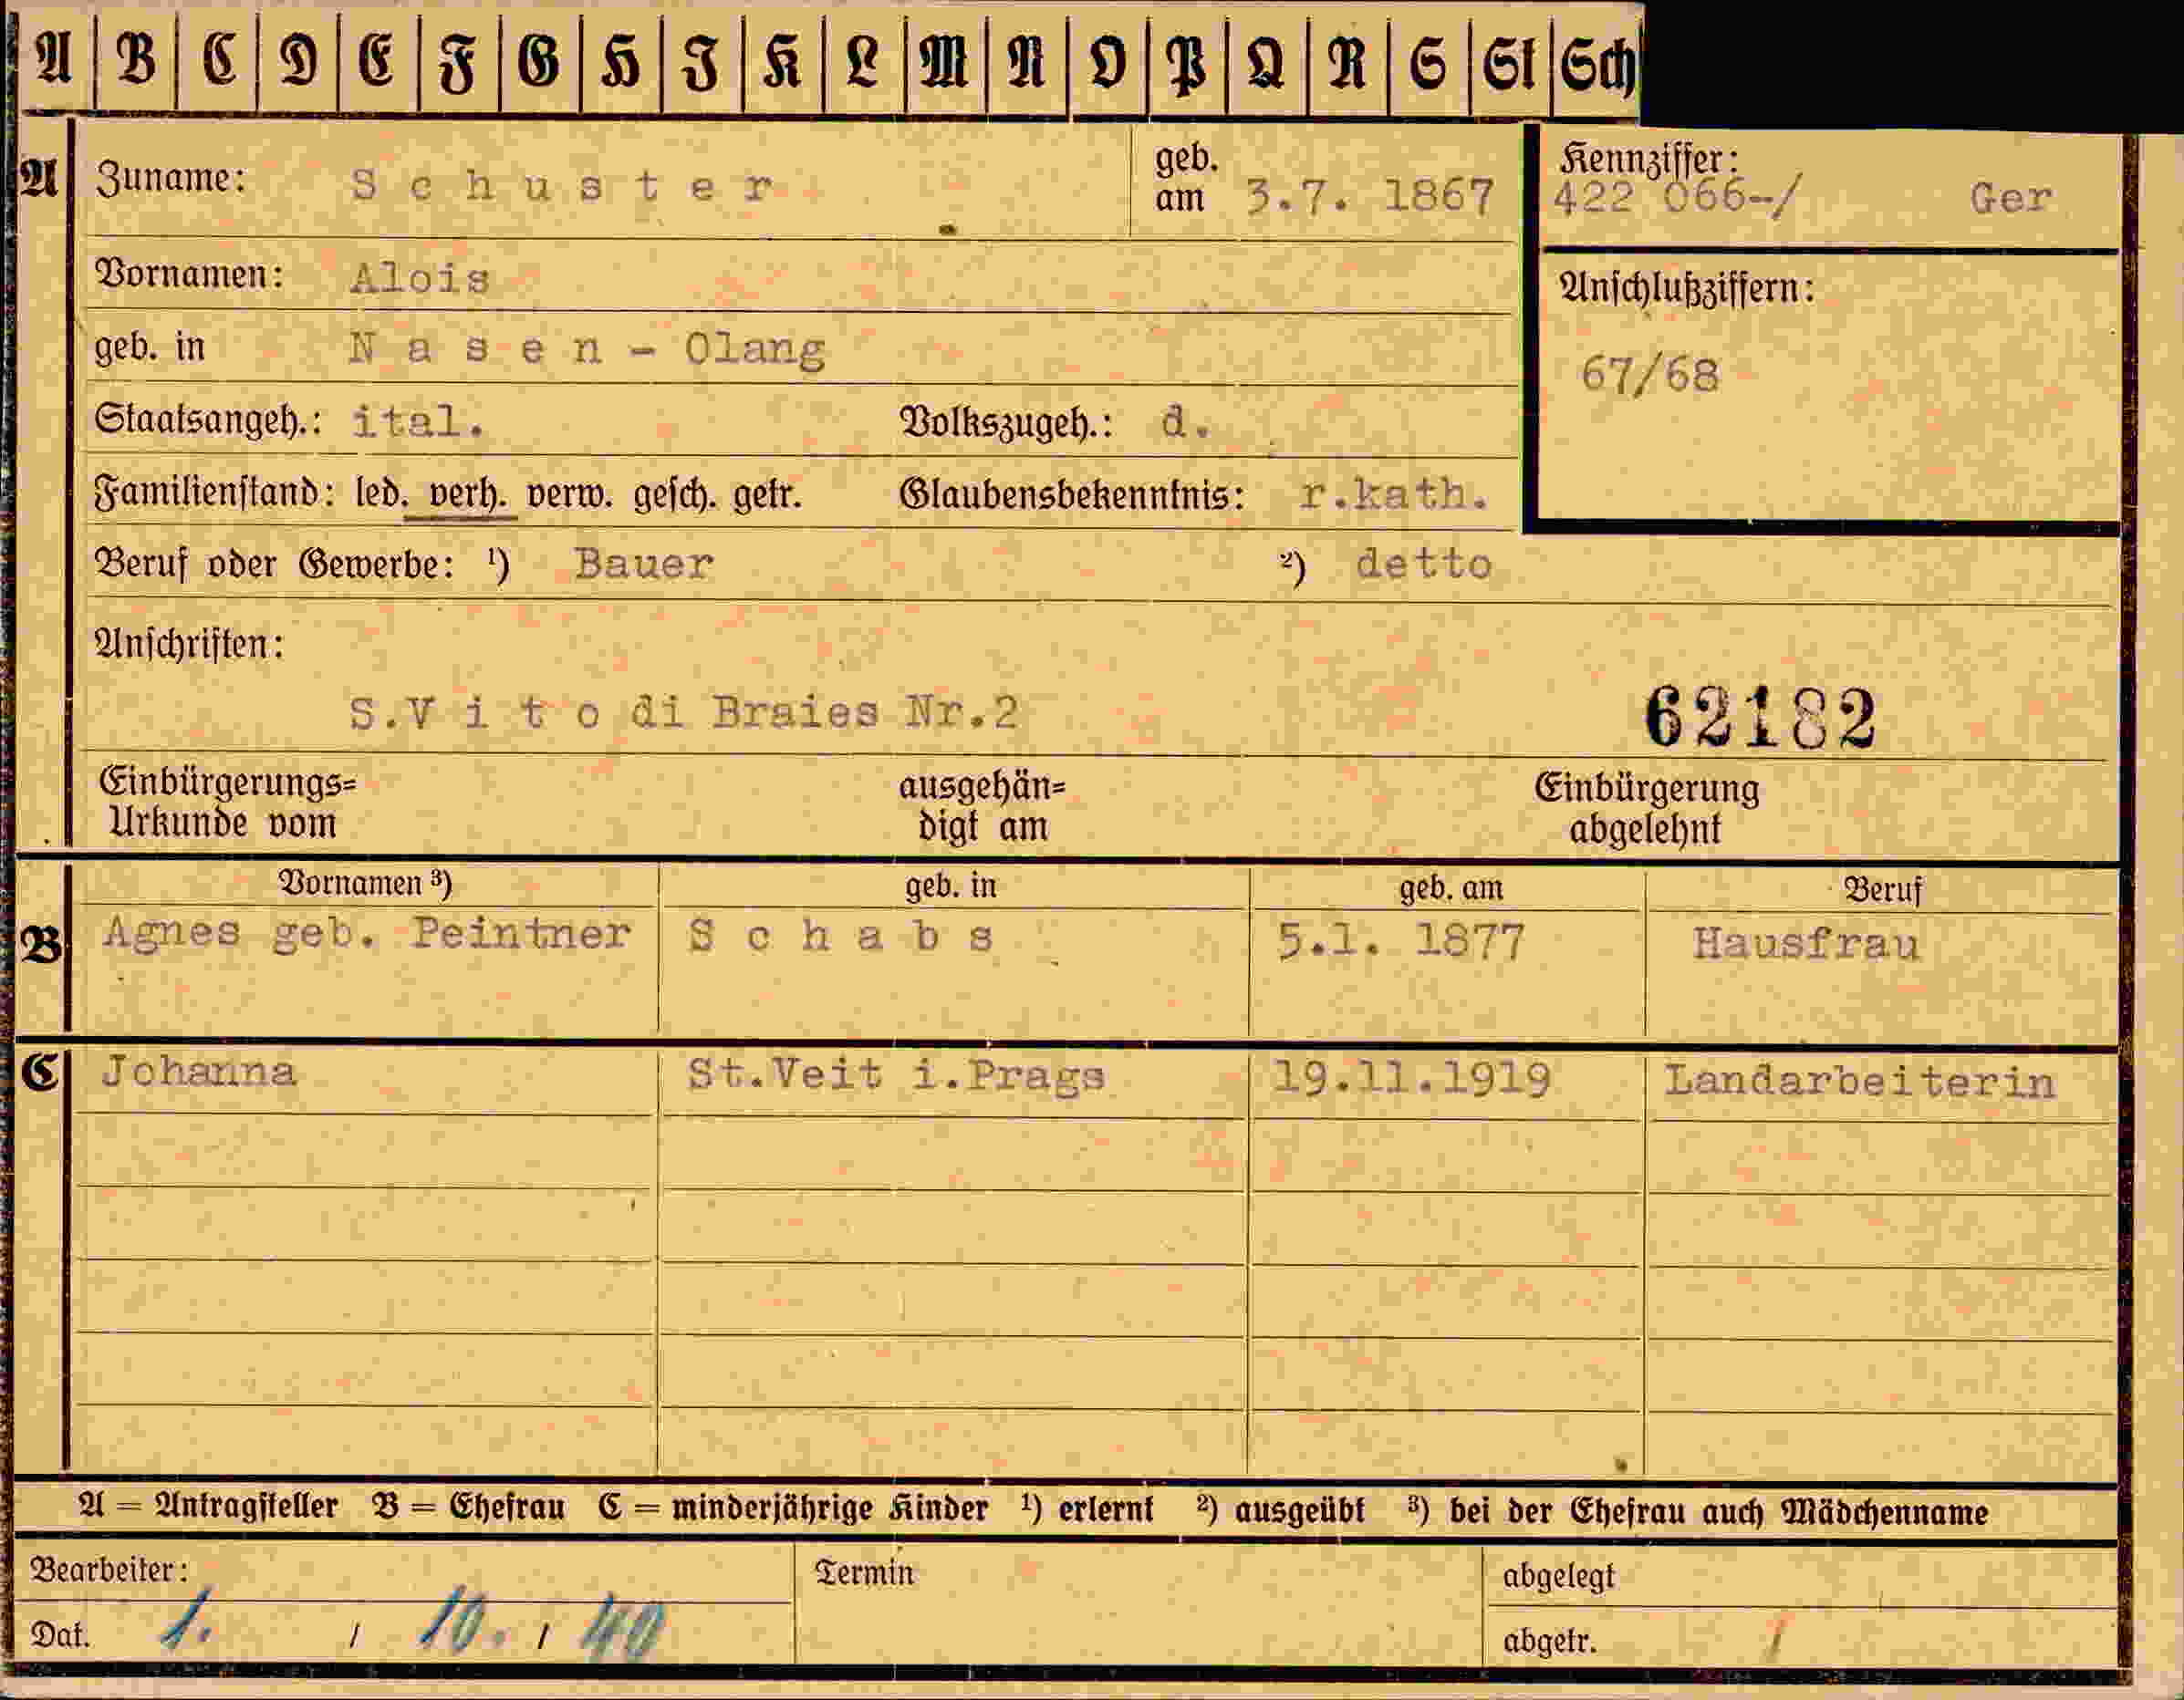 A B C D E F G H I K L M N O P Q R S St Sch
A Zuname: Schuster geb. am 3.7. 1867 Kennziffer: 422 066-/ Ger
Vornamen: Alois Anschlußziffern:
geb. in Nasen - Olang 67/68
Staatsangeh.: ital. Volkszugeh.: d.
Familienstand: led. verh. verw. gesch. getr. Glaubensbekenntnis: r.kath.
Beruf oder Gewerbe: ¹) Bauer ²) detto
Anschriften:
S.Vito di Braies Nr.2 62182
Einbürgerungs= ausgehän= Einbürgerung
Urkunde vom digt am abgelehnt
Vornamen ³) geb. in geb. am Beruf
B Agnes geb. Peintner Schabs 5.1. 1877 Hausfrau
C Johanna St.Veit i.Prags 19.11.1919 Landarbeiterin
A = Antragsteller B = Ehefrau C = minderjährige Kinder ¹) erlernt ²) ausgeübt ³) bei der Ehefrau auch Mädchenname
Bearbeiter: Termin abgelegt
Dat. 1. / 10. / 40 abgetr. /